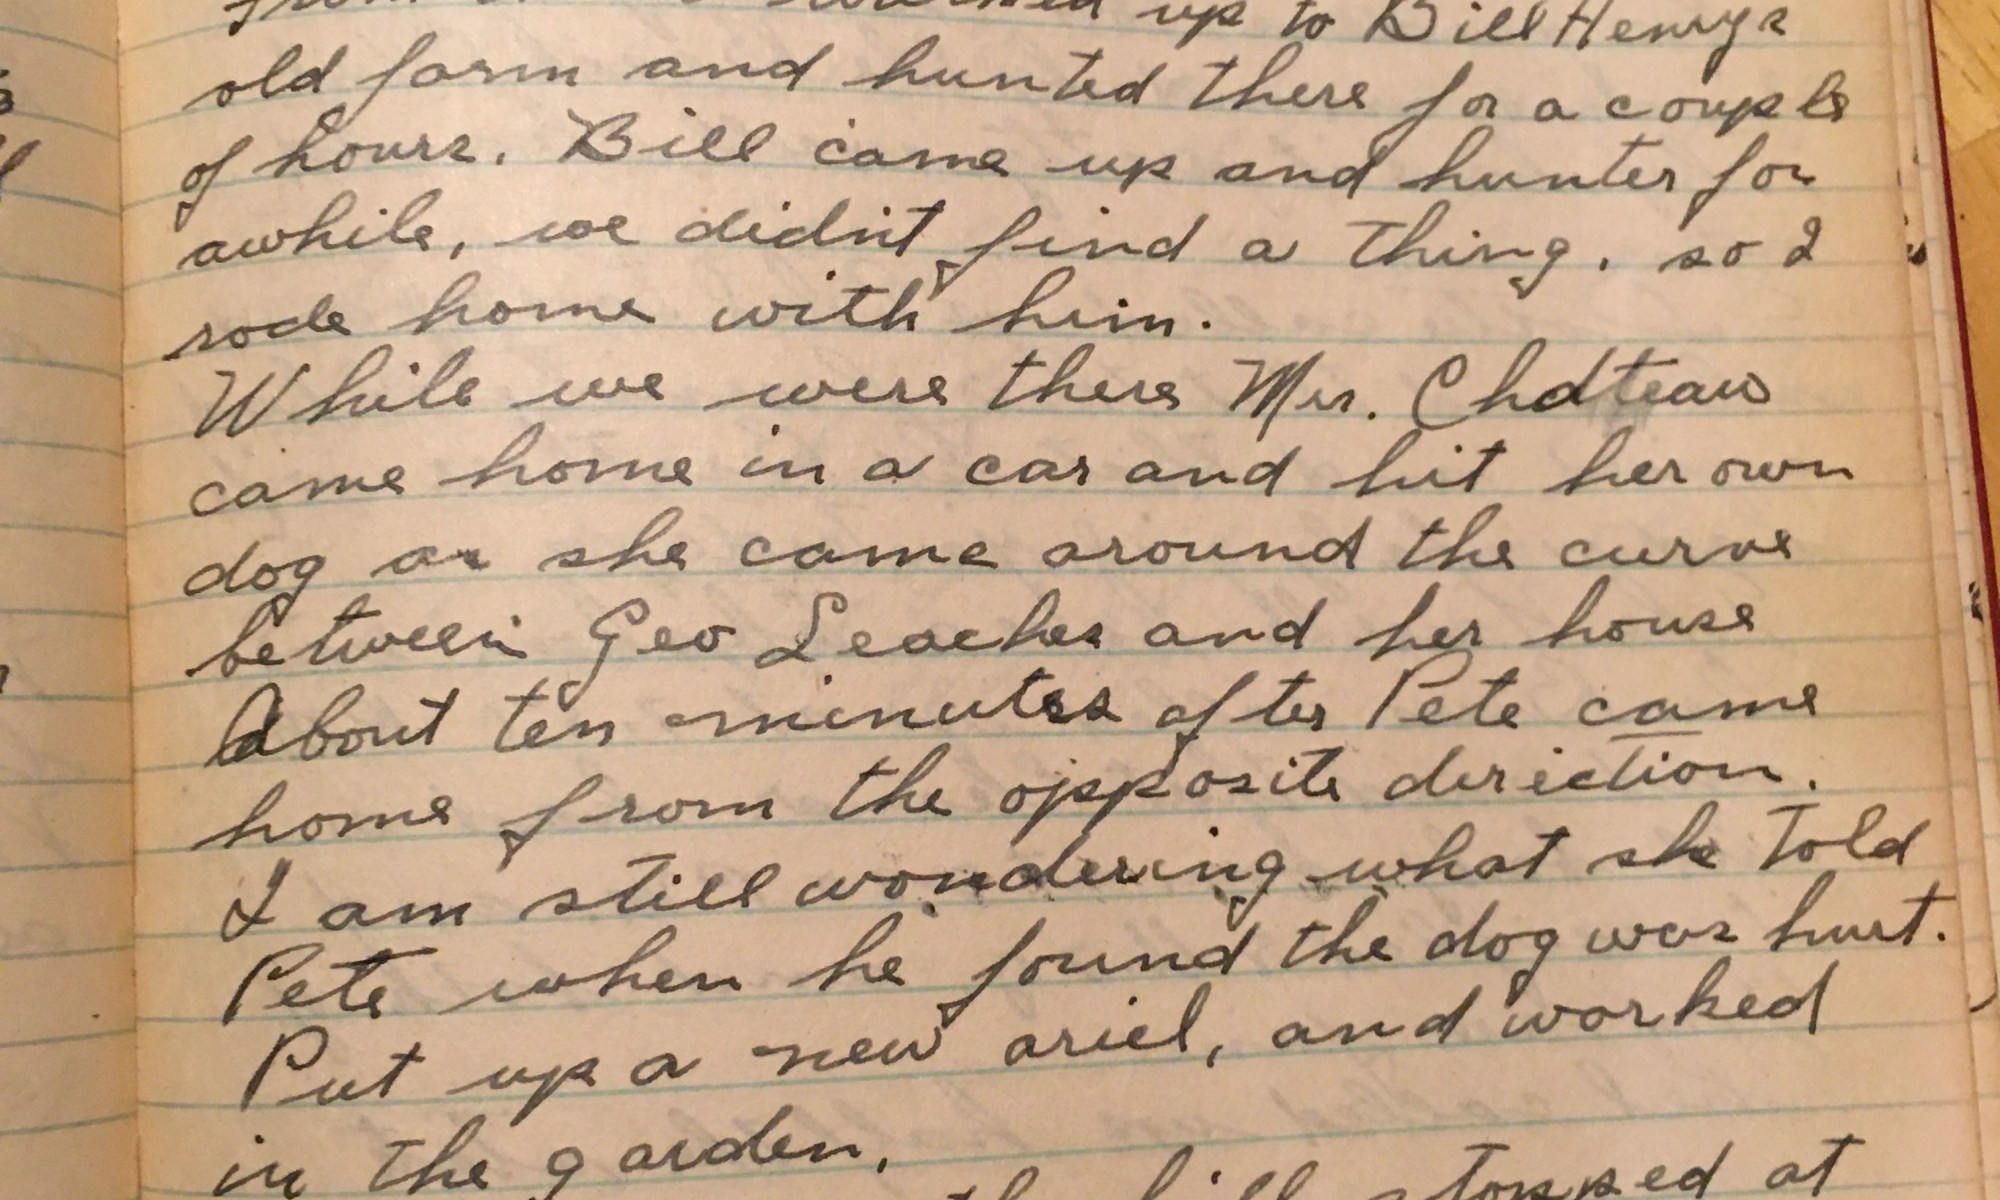 up to Bill Henrys
old farm and hunted there for a couple
of hours. Bill came up and hunter for
awhile, we didn't find a thing. so I
rode home with him.
While we were there Mrs. Chateau
came home in a car and hit her own
dog as she came around the curve
between Geo Leaches and her house
About ten minutes after Pete came
home from the opposite direction.
I am still wondering what she told
Pete when he found the dog was hurt.
Put up a new ariel, and worked
in the garden.
stopped at